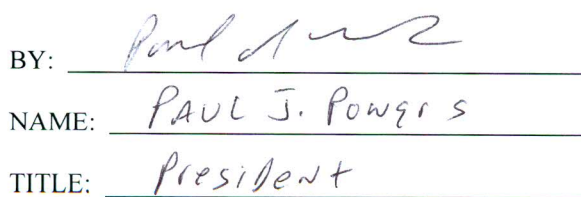 BY: Paul
NAME: PAUL J. Powers
TITLE: President